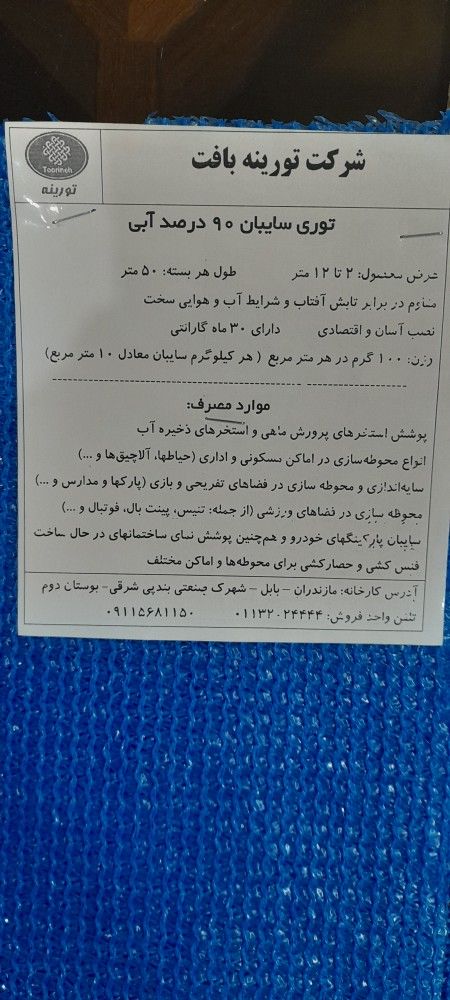 شرکت تورینه بافت
Toorineh
تورینه
توری سایبان ۹۰ درصد آبی
عرض معمول: ۲ تا ۱۲ متر طول هر بسته: ۵۰ متر
مقاوم در برابر تابش آفتاب و شرایط آب و هوایی سخت
نصب آسان و اقتصادی دارای ۳۰ ماه گارانتی
وزن: ۱۰۰ گرم در هر متر مربع ( هر کیلوگرم سایبان معادل ۱۰ متر مربع)
موارد مصرف:
پوشش استخرهای پرورش ماهی و استخرهای ذخیره آب
انواع محوطه‌سازی در اماکن مسکونی و اداری (حیاطها، آلاچیق‌ها و ...)
سایه‌اندازی و محوطه سازی در فضاهای تفریحی و بازی (پارکها و مدارس و ...)
محوطه سازی در فضاهای ورزشی (از جمله: تنیس، پینت بال، فوتبال و ...)
سایبان پارکینگهای خودرو و هم‌چنین پوشش نمای ساختمانهای در حال ساخت
فنس کشی و حصارکشی برای محوطه‌ها و اماکن مختلف
آدرس کارخانه: مازندران – بابل – شهرک صنعتی بندپی شرقی- بوستان دوم
تلفن واحد فروش: ۰۱۱۳۲۰۲۴۴۴۴ ۰۹۱۱۵۶۸۱۱۵۰